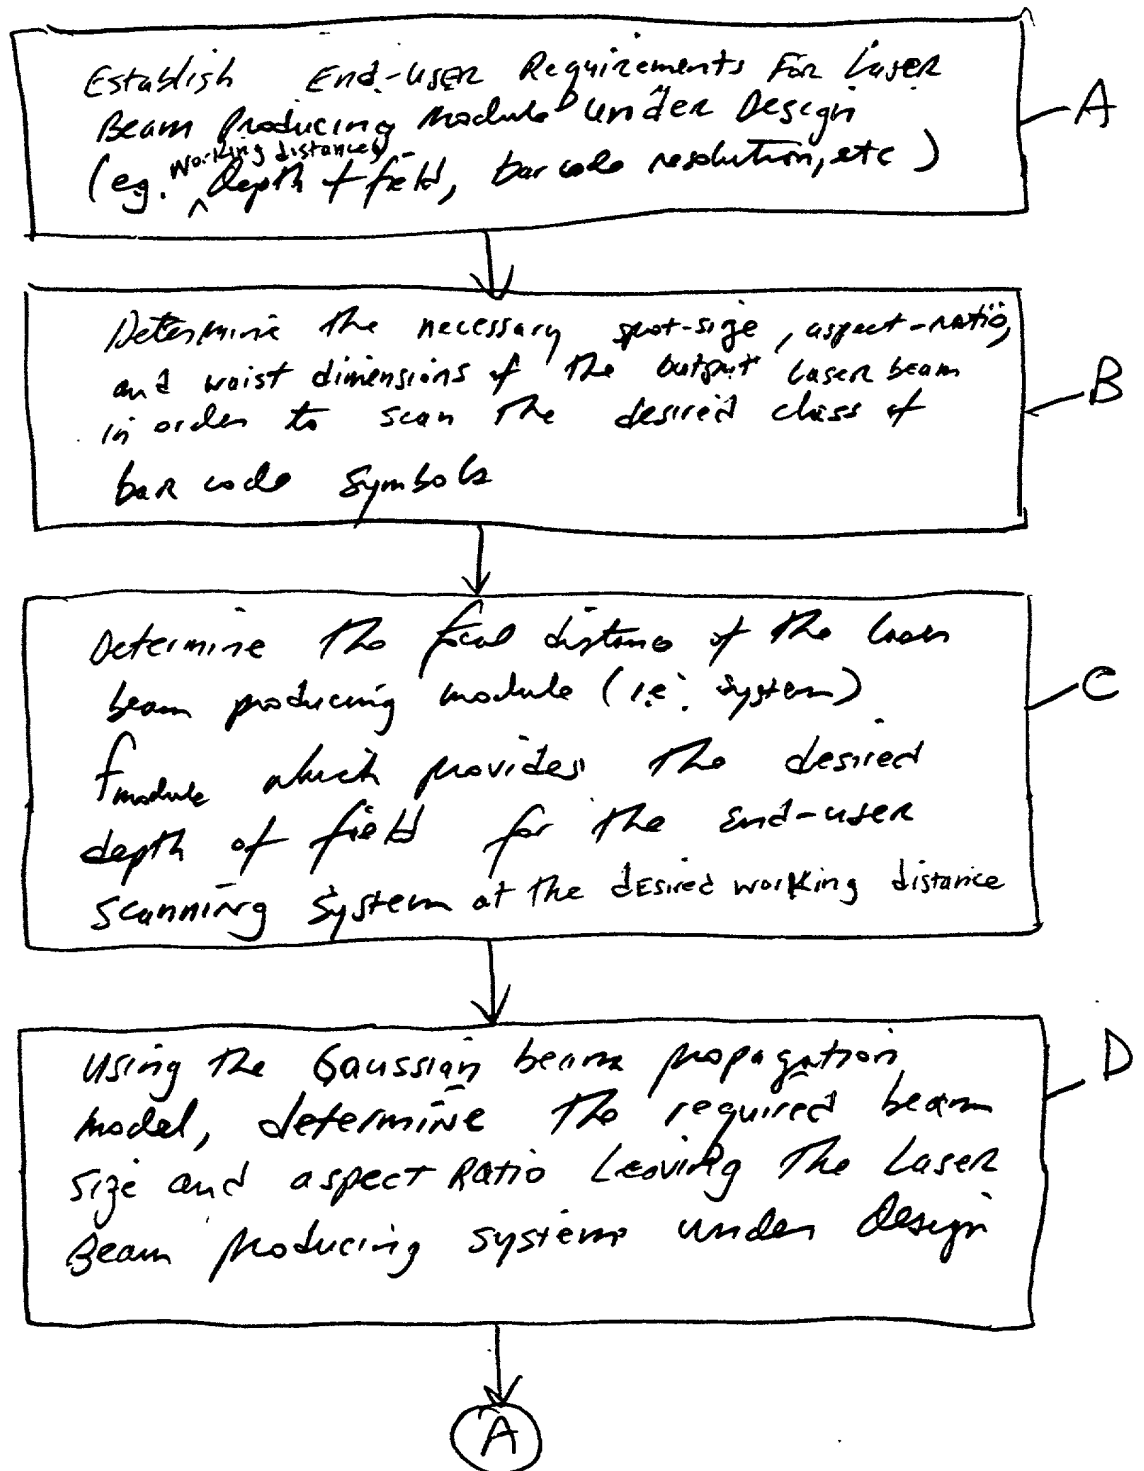 Establish End-User Requirements For Laser
Beam Producing Module Under Design
working distances
(eg. ^ depth of field, bar code resolution, etc)
A
Determine the necessary spot-size, aspect-ratio,
and waist dimensions of the output laser beam
in order to scan the desired class of
bar code symbols
B
Determine the focal distance of the laser
beam producing module (i.e. system)
fmodule which provides the desired
depth of field for the end-user
scanning system at the desired working distance
C
Using the Gaussian beam propagation
model, determine the required beam
size and aspect Ratio Leaving The Laser
Beam producing system under design
D
A